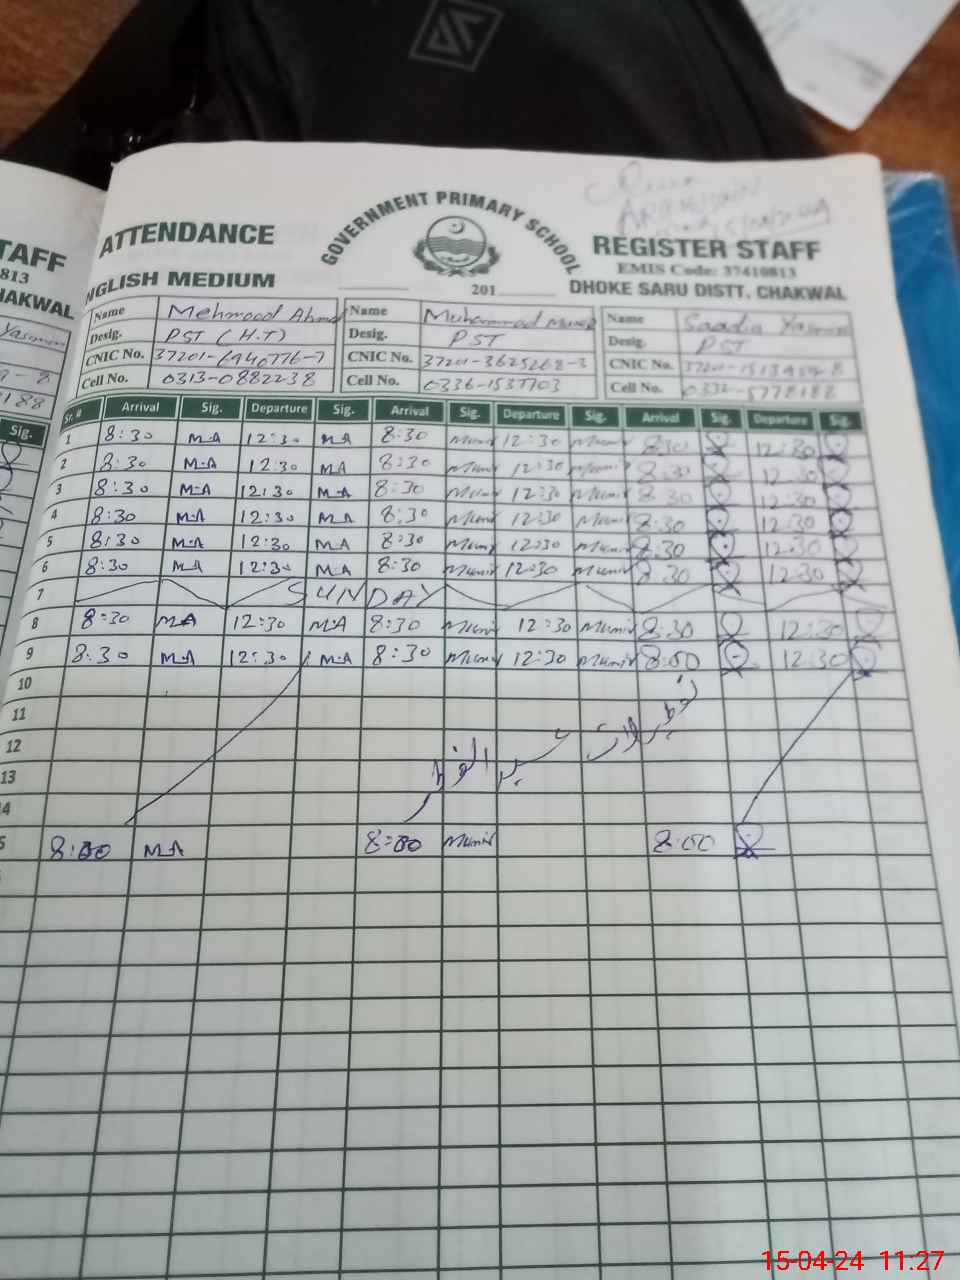 TAFF
813
HAKWAL
Yasmin
188
Sig.
GOVERNMENT PRIMARY SCHOOL
ATTENDANCE
REGISTER STAFF
EMIS Code: 37410813
NGLISH MEDIUM
201
DHOKE SARU DISTT. CHAKWAL
Name Mehmood Ahmed Name Muhammad Munir Name Saadia Yasmin
Desig. PST (H.T) Desig. PST Desig. PST
CNIC No. CNIC No. CNIC No.
Cell No. 0313-0882238 Cell No. 0336-1537703 Cell No.
Sr. # Arrival Sig. Departure Sig. Arrival Sig. Departure Sig. Arrival Sig. Departure Sig.
1 8:30 M.A 12:30 MA 8:30 Munir 12:30 Munir 8:30 12:30
2 8:30 M.A 12:30 MA 8:30 Munir 12:30 Munir 8:30 12:30
3 8:30 M.A 12:30 MA 8:30 Munir 12:30 Munir 8:30 12:30
4 8:30 M.A 12:30 MA 8:30 Munir 12:30 Munir 8:30 12:30
5 8:30 M.A 12:30 MA 8:30 Munir 12:30 Munir 8:30 12:30
6 8:30 MA 12:30 MA 8:30 Munir 12:30 Munir 8:30 12:30
7 SUNDAY
8 8:30 MA 12:30 MA 8:30 Munir 12:30 Munir 8:30 12:30
9 8:30 M.A 12:30 M.A 8:30 Munir 12:30 Munir 8:00 12:30
10
11
12
13
تعطیلات عید الفطر
4
5 8:00 MA 8:00 Munir 8:00
15-04-24 11:27